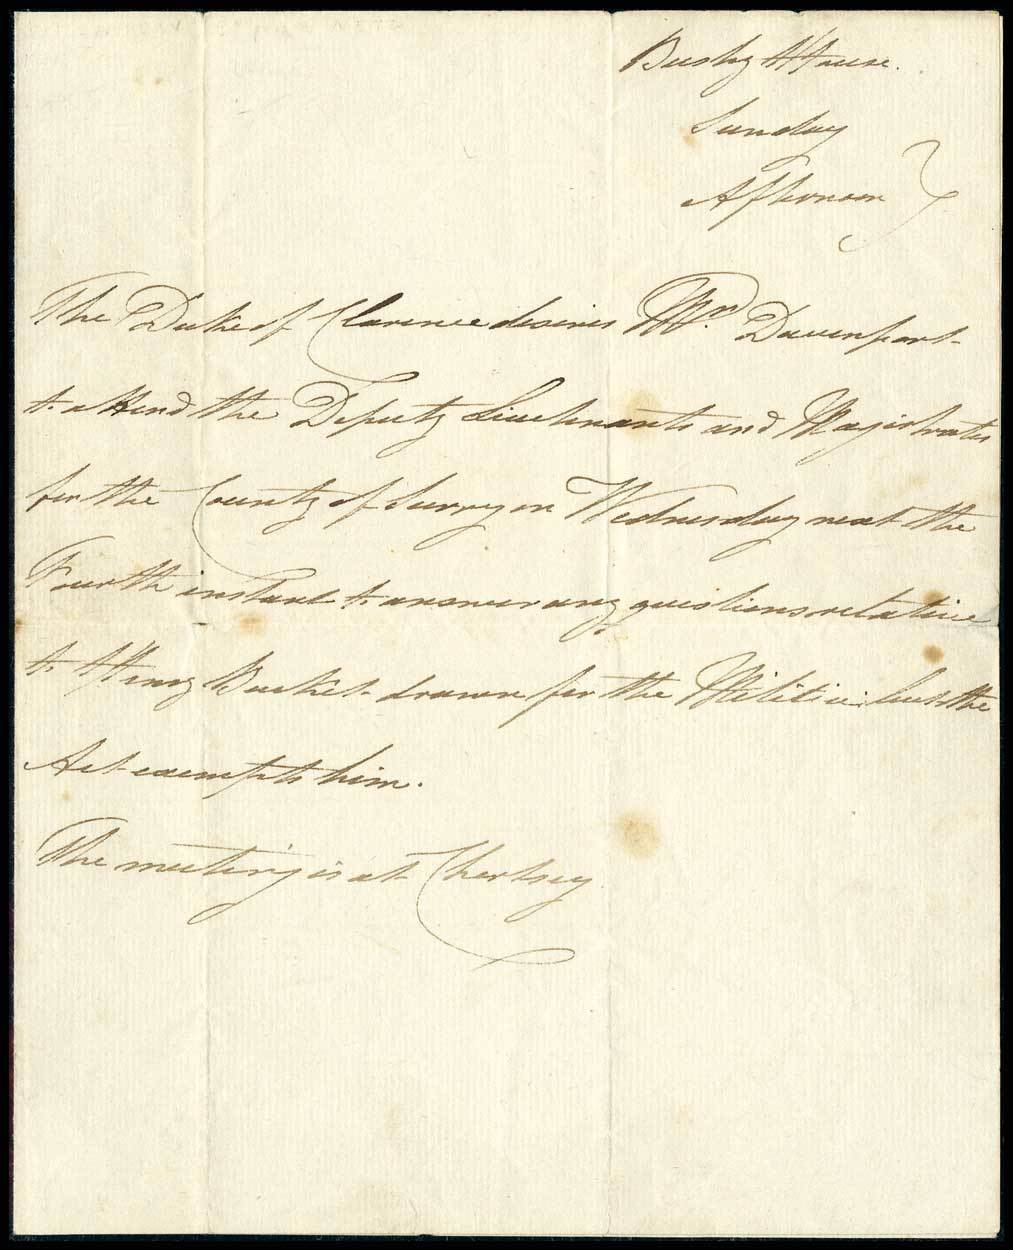 Bushy House.
Sunday
Afternoon
The Duke of Clarence desires Mr. Davenport
to attend the Deputy Lieutenants and Magistrates
for the County of Surry on Wednesday next the
Fourth instant to answer any questions relative
to Henry Bucket drawn for the Militia but the
Act exempts him.
The meeting is at Chertsey